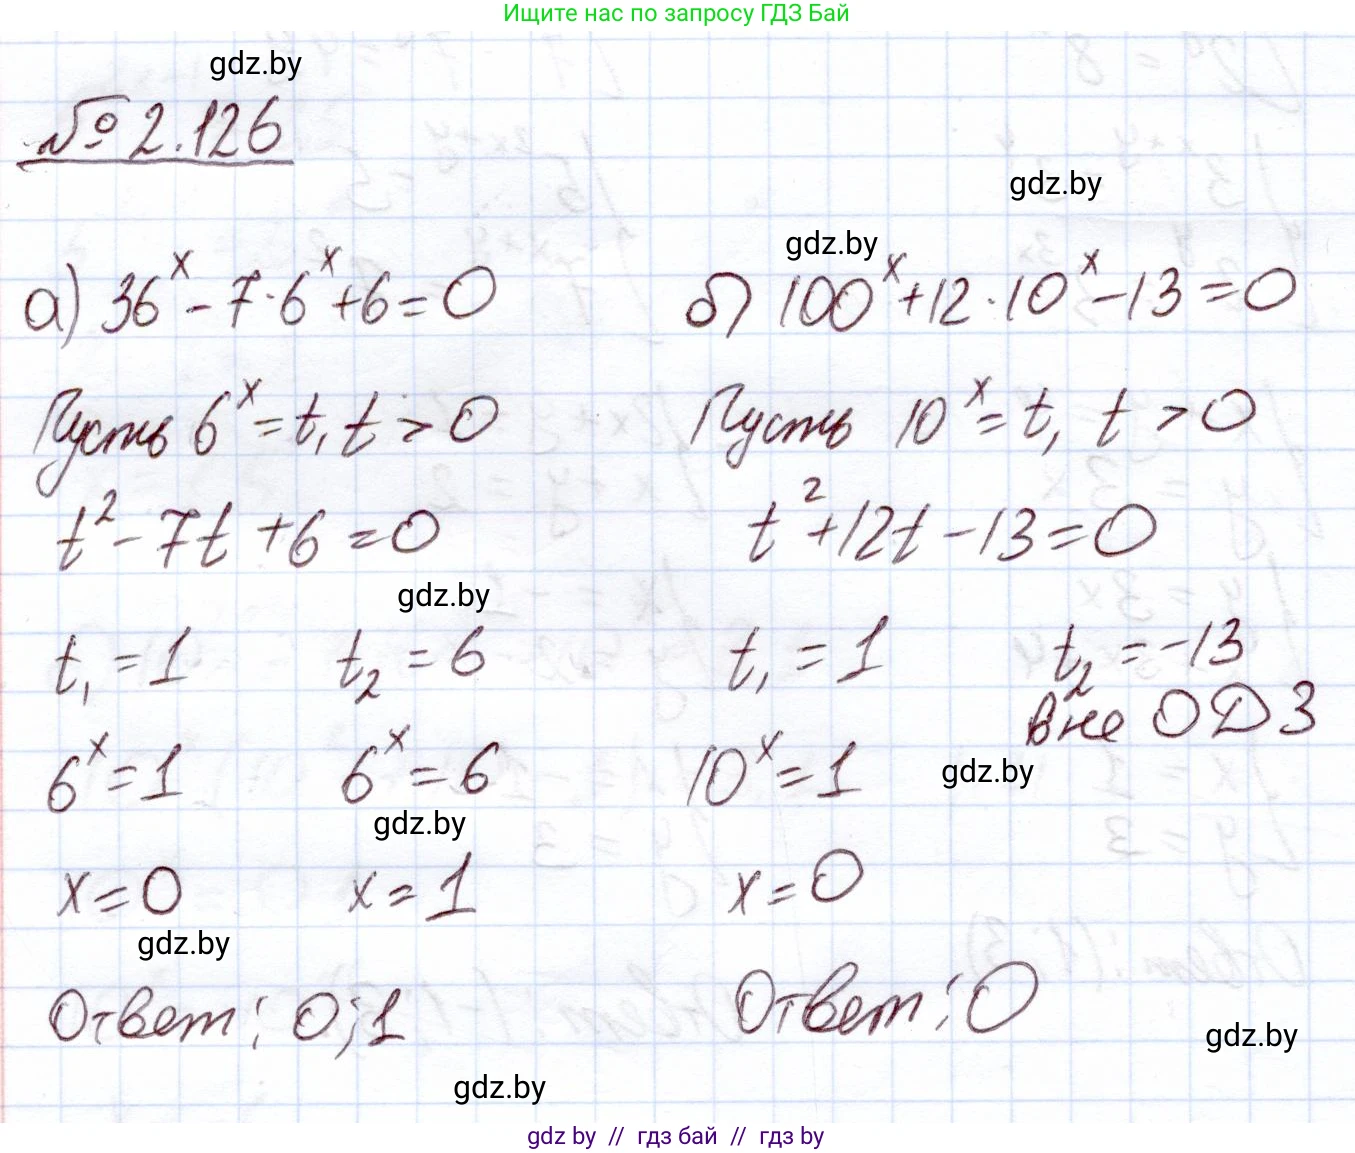 Ищите нас по запросу ГДЗ Бай
gdz.by
№ 2.126
gdz.by
gdz.by
а) 36^x - 7·6^x + 6 = 0
Пусть 6^x = t, t > 0
t^2 - 7t + 6 = 0
gdz.by
t_1 = 1 t_2 = 6
6^x = 1 6^x = 6
gdz.by
x = 0 x = 1
gdz.by
Ответ: 0; 1
gdz.by
б) 100^x + 12·10^x - 13 = 0
Пусть 10^x = t, t > 0
t^2 + 12t - 13 = 0
t_1 = 1 t_2 = -13
вне ОДЗ
10^x = 1
gdz.by
x = 0
Ответ: 0
gdz.by
gdz by // гдз бай // гдз by